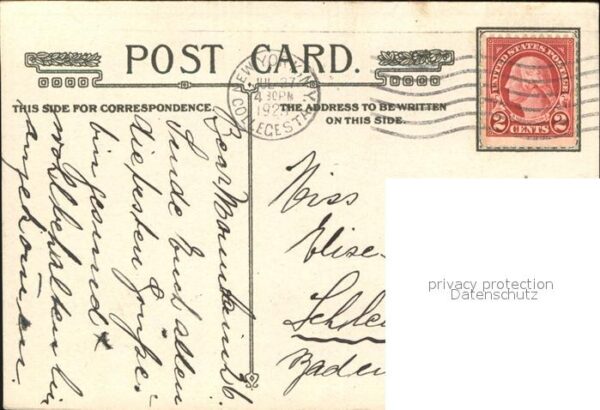 POST CARD.
THIS SIDE FOR CORRESPONDENCE.
THE ADDRESS TO BE WRITTEN
ON THIS SIDE.
NEW YORK, N.Y.
JUL 27
4 30PM
192
COLLEGE STA.
UNITED STATES POSTAGE
2 CENTS 2
Bear Mountain 26.
Sende Euch allen
die besten Grüße.
bin gesund &
wohlbehalten hier
angekommen.
Miss
Elise
Baden
privacy protection
Datenschutz